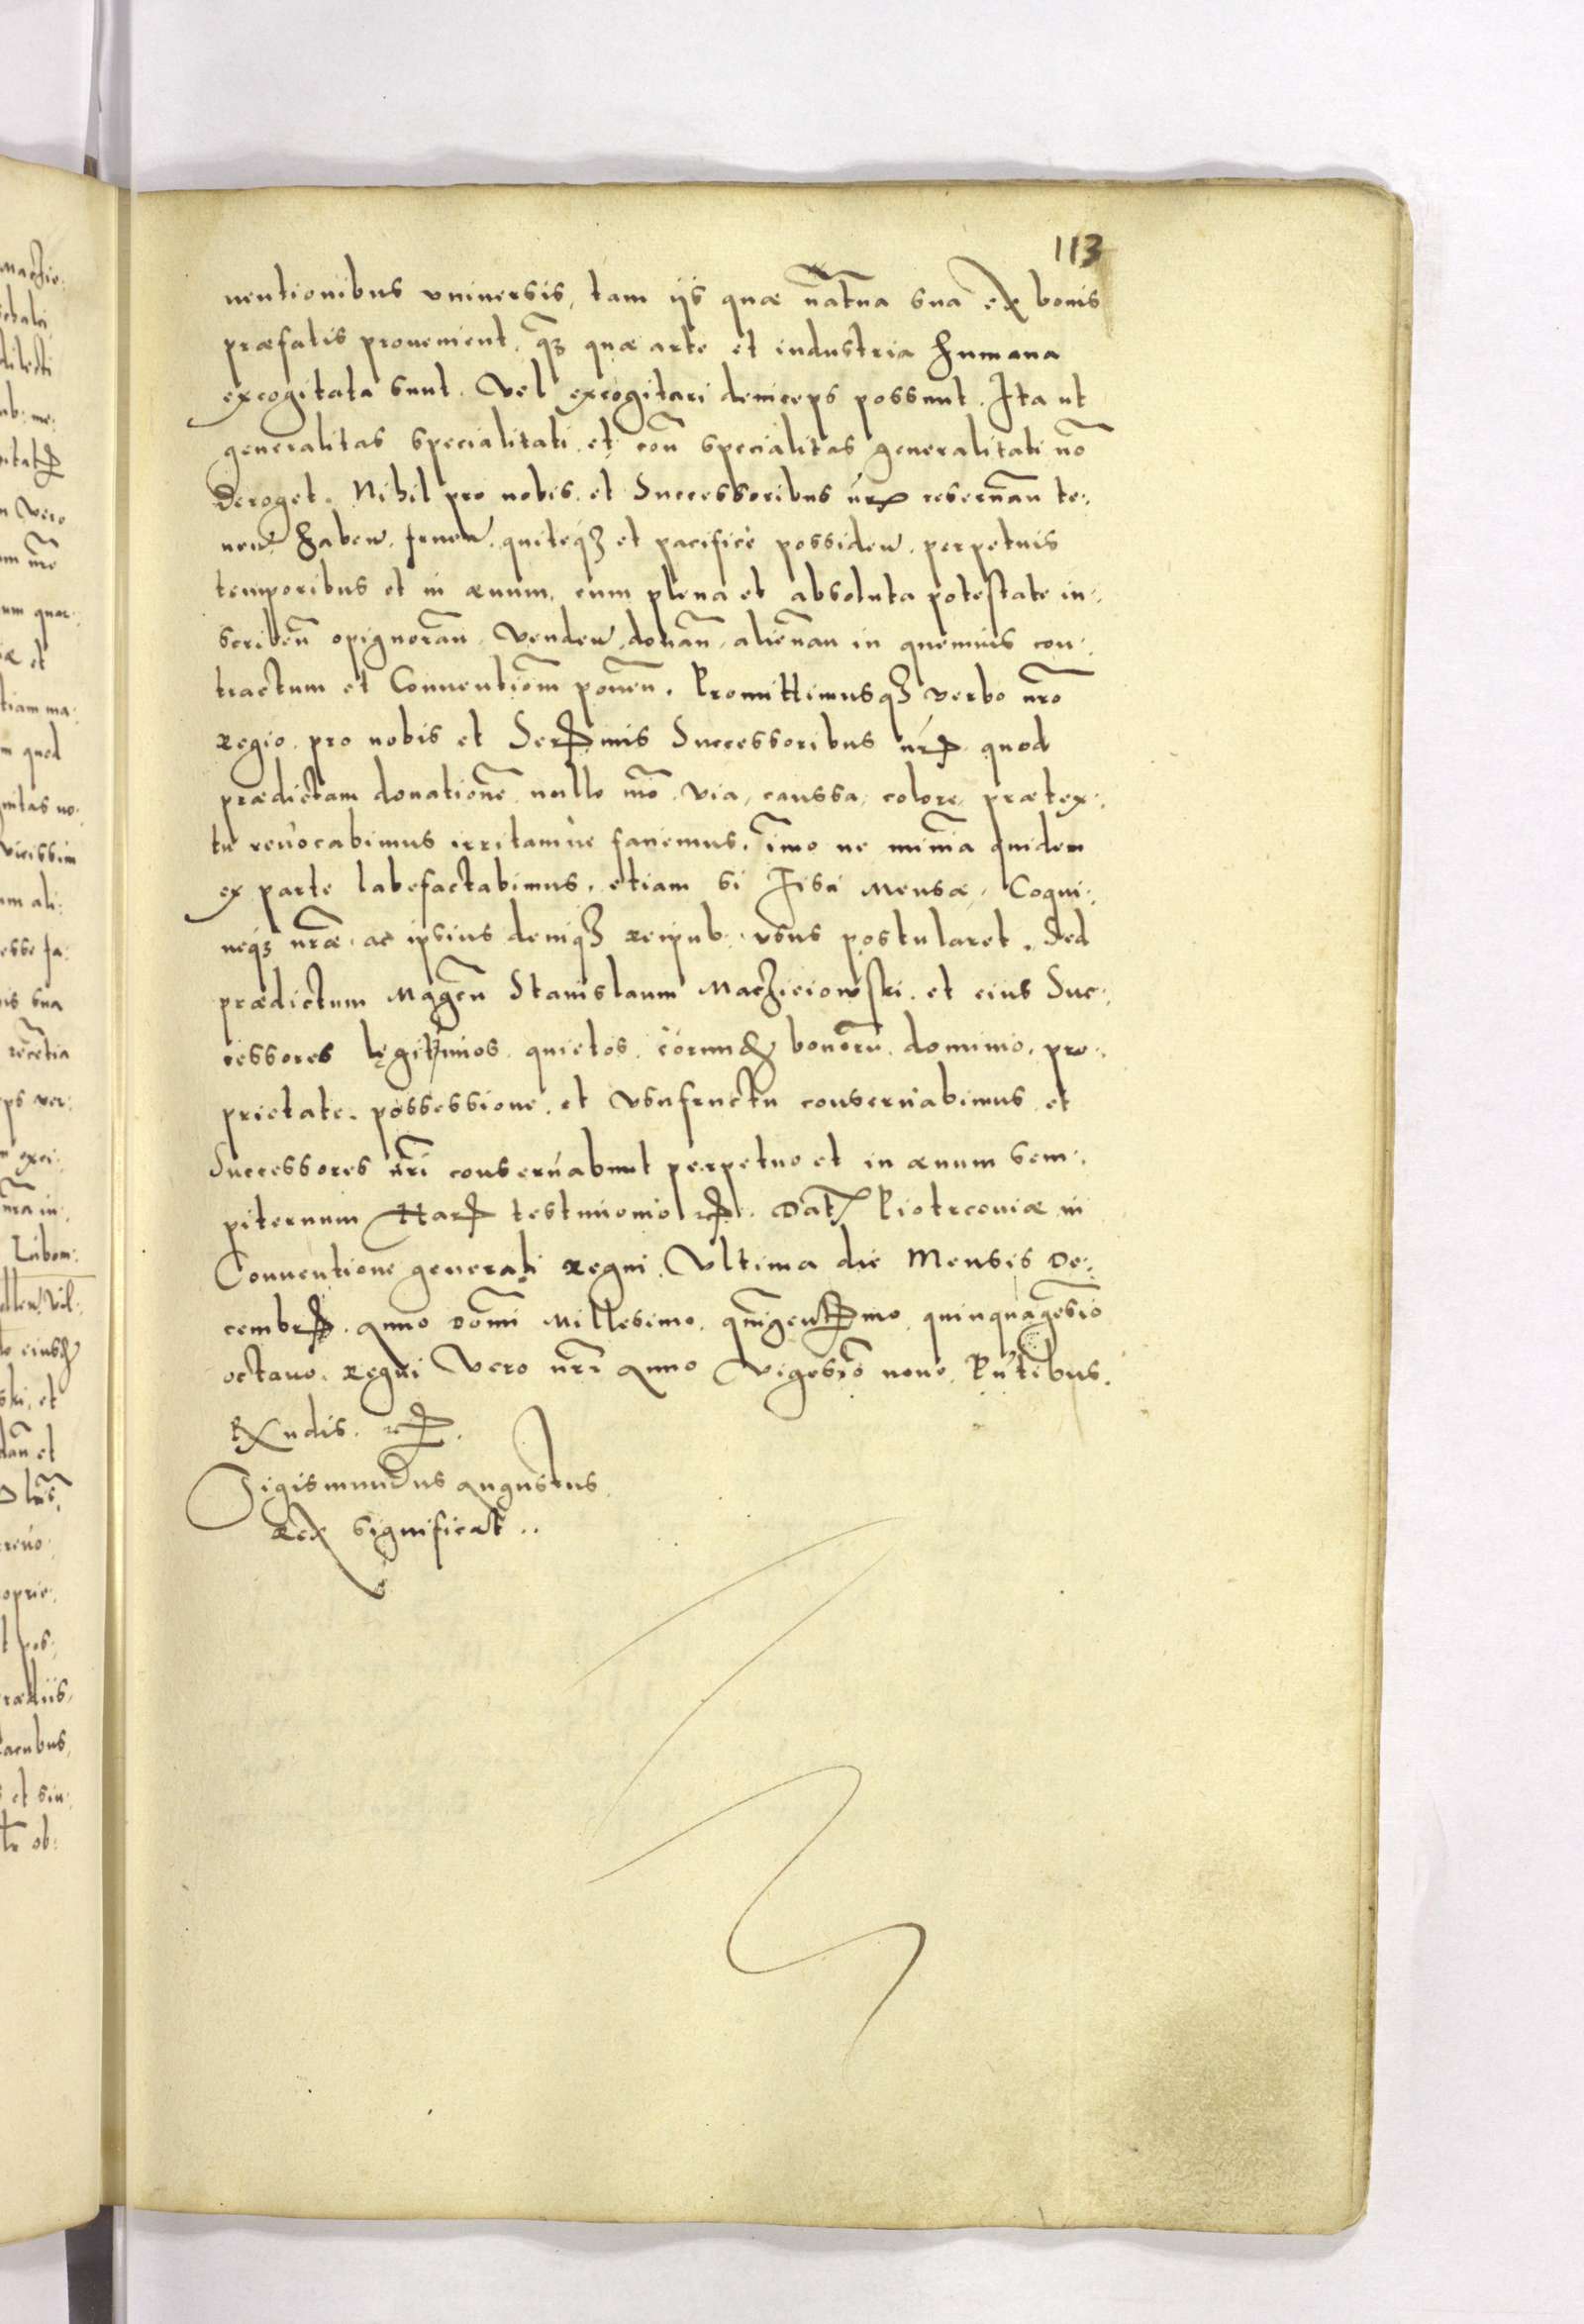 113
uentionibus vniuersis, tam ijs quæ nātua sua ex bonis
præfatis prouenient, q̄ꝫ quæ arte et industria humana
excogitata sunt. Vel excogitari deinceps possunt. Ita ut
generalitas specialitati et eoñ specialitas generalitati nō
deroget. Nihil pro nobis et Successoribus nrꝭ reseruan̄ te:
nen̄ haben̄. fruen̄. quiteqꝫ et pacifice possiden̄. perpetuis
temporibus et in æuum, cum plena et absoluta potestate in:
scriben̄ opignoran̄. Venden̄ donan̄ alienan̄ in quemuis con:
tractum et Conuentiom̄ ponen̄. Promittimusqꝫ verbo nr̄o
regio pro nobis et Serꝭmis Successoribus nrꝭ quod
prædictam donationē nullo mō via, caussa, colore prætex:
tu reuocabimus irritamue faciemus, īmo ne minīa quidem
ex parte labefactabimus, etiam si Fisci Mensæ, Coqui:
neqꝫ nr̄æ ac ipsius deniqꝫ reipub: vsus postularet. Sed
prædictum Magcm̄ Stanislaum Maczieiowski et eius Suc:
cessores legitimos quietos eorundꝭ bonorū dominio, pro:
prietate, possessione et vsufructu conseruabimus et
Successores nr̄i conseruabunt perpetuo et in æuum sem:
piternum Harꝭ testimonio rꝭ. Datꝭ Piotrcouiæ in
Conuentione generali regni. Vltima die Mensis De:
cembrꝭ. Anno Domī Millesimo quīgentꝭmo quinquagesīo
octauo. regni Vero nr̄i Anno Vigesīo nono Pn̄tibus.
Rxndis. rꝭ.
Sigismundus Augustus
Rex significat..